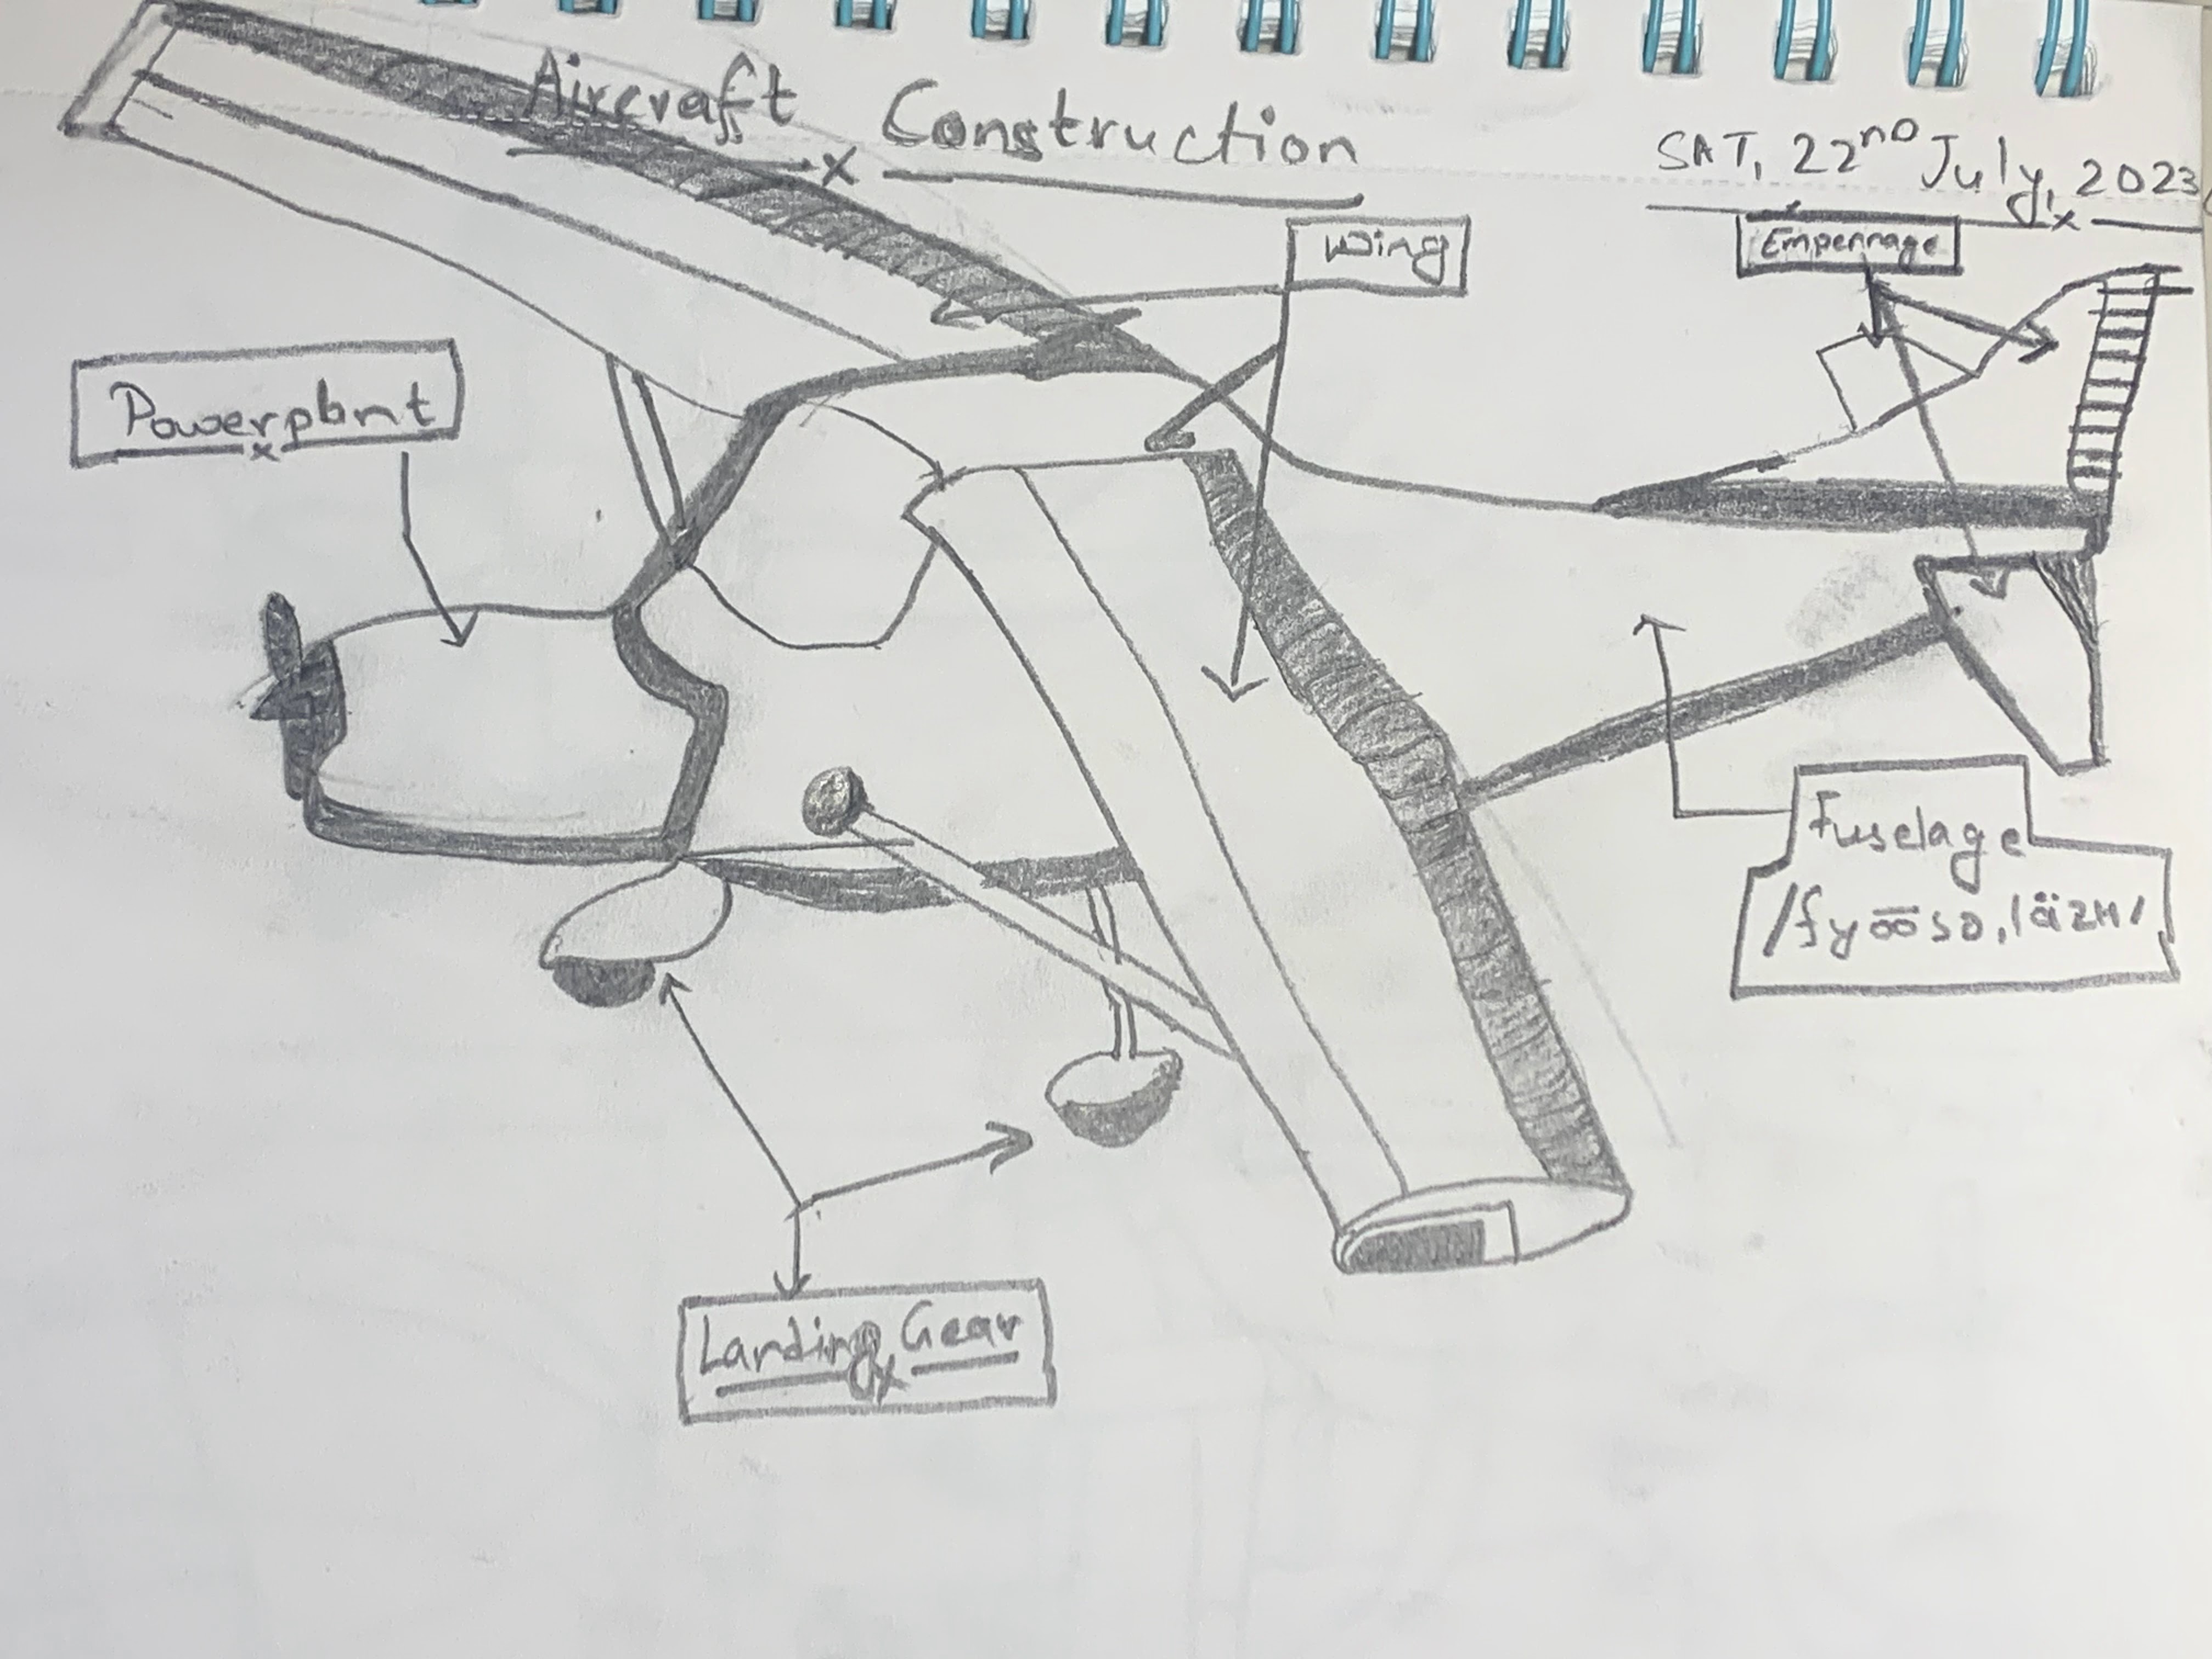 Aircraft Construction
SAT, 22nd July, 2023
Wing
Empennage
Powerplant
Fuselage
/fyo͞osə,läZH/
Landing Gear